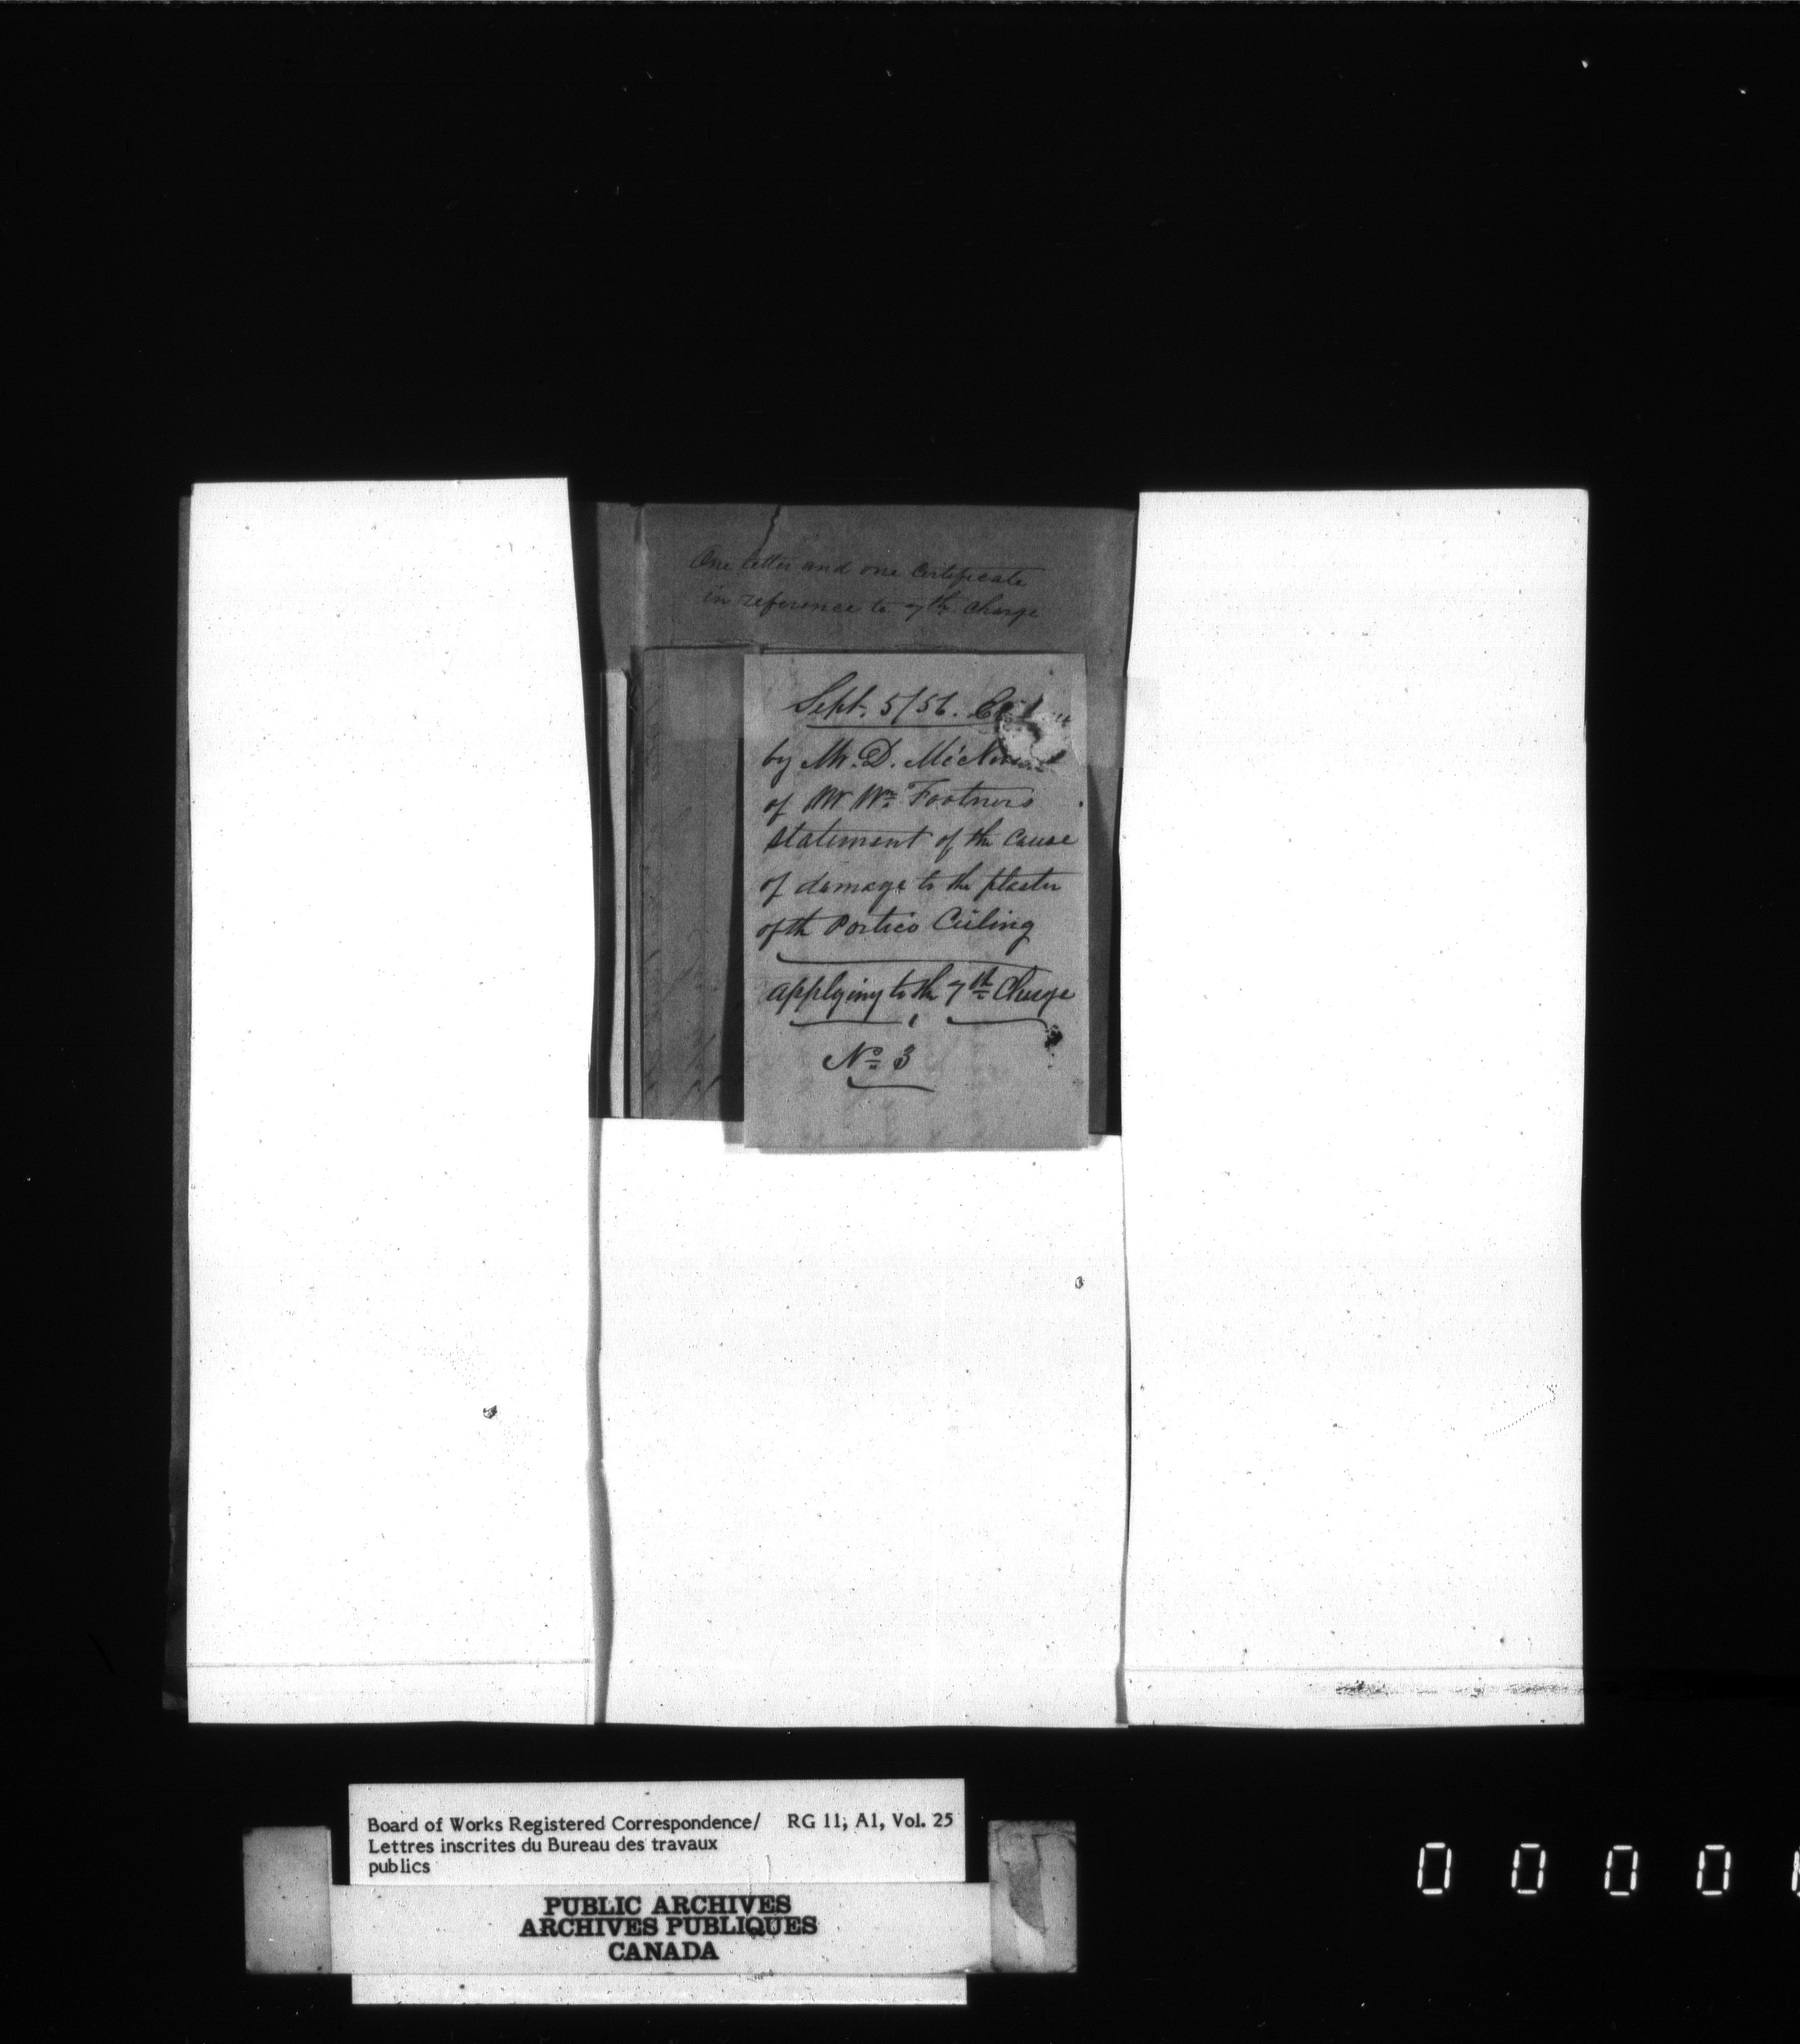 One letter and one Certificate
in reference to 7th Charge
Sept. 5/56.
by Mr. D.
of Mr Wm. Footners
statement of the cause
of damage to the plaster
of the Portico Ceiling
applying to the 7th Charge
No 3
Board of Works Registered Correspondence/ RG 11, A1, Vol. 25
Lettres inscrites du Bureau des travaux
publics
PUBLIC ARCHIVES
ARCHIVES PUBLIQUES
CANADA
0 0 0 0